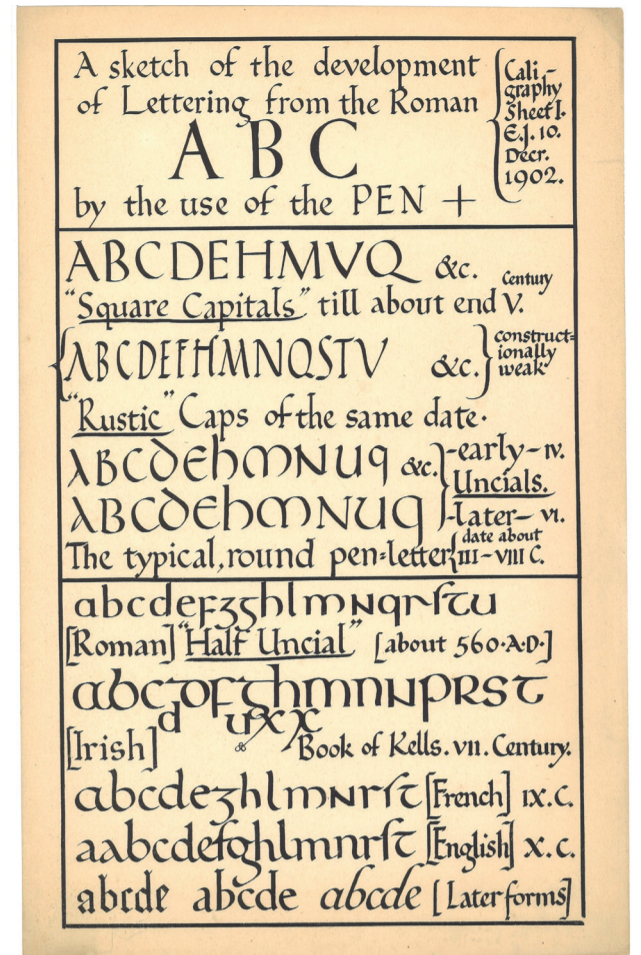 A sketch of the development
of Lettering from the Roman
A B C
by the use of the PEN +
Cali-
graphy
Sheet I.
E.J. 10.
Decr.
1902.
ABCDEHMVQ &c.
"Square Capitals" till about end V. Century
ABCDEFHMNQSTV &c. construct=
ionally
weak
"Rustic" Caps of the same date.
ABCDEhMNUq &c. -early-IV.
Uncials.
ABCDEhMNUq -later- VI.
The typical, round pen=letter date about
III-VIII C.
abcdefgghlmNqrſtu
[Roman] "Half Uncial" [about 560.A.D.]
abcdofghmnNPRST
d uxx
[Irish] & Book of Kells. VII. Century.
abcdeghlmNrſt [French] IX.C.
aabcdefghlmnrſt [English] X.C.
abcde abcde abcde [Later forms]